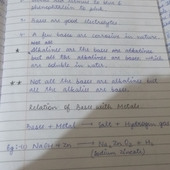 phenolphthalein to pink
Bases are good electrolyte
A few bases are corrosive in nature
Alkalines are the bases are alkalines
but all the alkalines are bases which
are soluble in water.
** Not all the bases are alkalines but
all the alkalies are bases.
Relation of Bases with Metals:
Bases + Metal → Salt + Hydrogen gas
Eg:- NaOH + Zn → Na2ZnO2 + H2
(Sodium zincate)